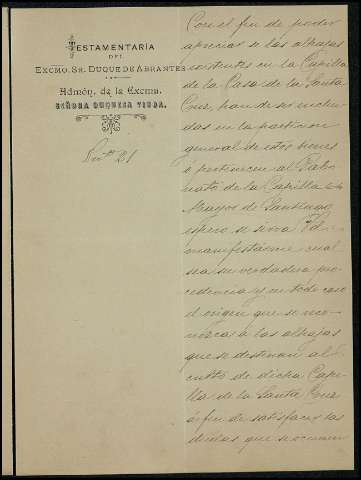 TESTAMENTARÍA
DEL
EXCMO. SR. DUQUE DE ABRANTES
Admón. de la Excma.
SEÑORA DUQUESA VIUDA.
21
Con el fin de poder
apreciar si las alhajas
existentes en la Capilla
de la Casa de la Santa
Cruz, han de ser inclui-
das en la particion
general de estos bienes
ó pertenecen al Patro-
nato de la Capilla de los
Mayos de Santiago,
espero se sirva Vd.
manifestarme cual
sea su verdadera pro-
cedencia y en todo caso
el origen que se reco-
nozca á las alhajas
que se destinan al
culto de dicha Capi-
lla de la Santa Cruz
á fin de satisfacer las
dudas que se ocurren